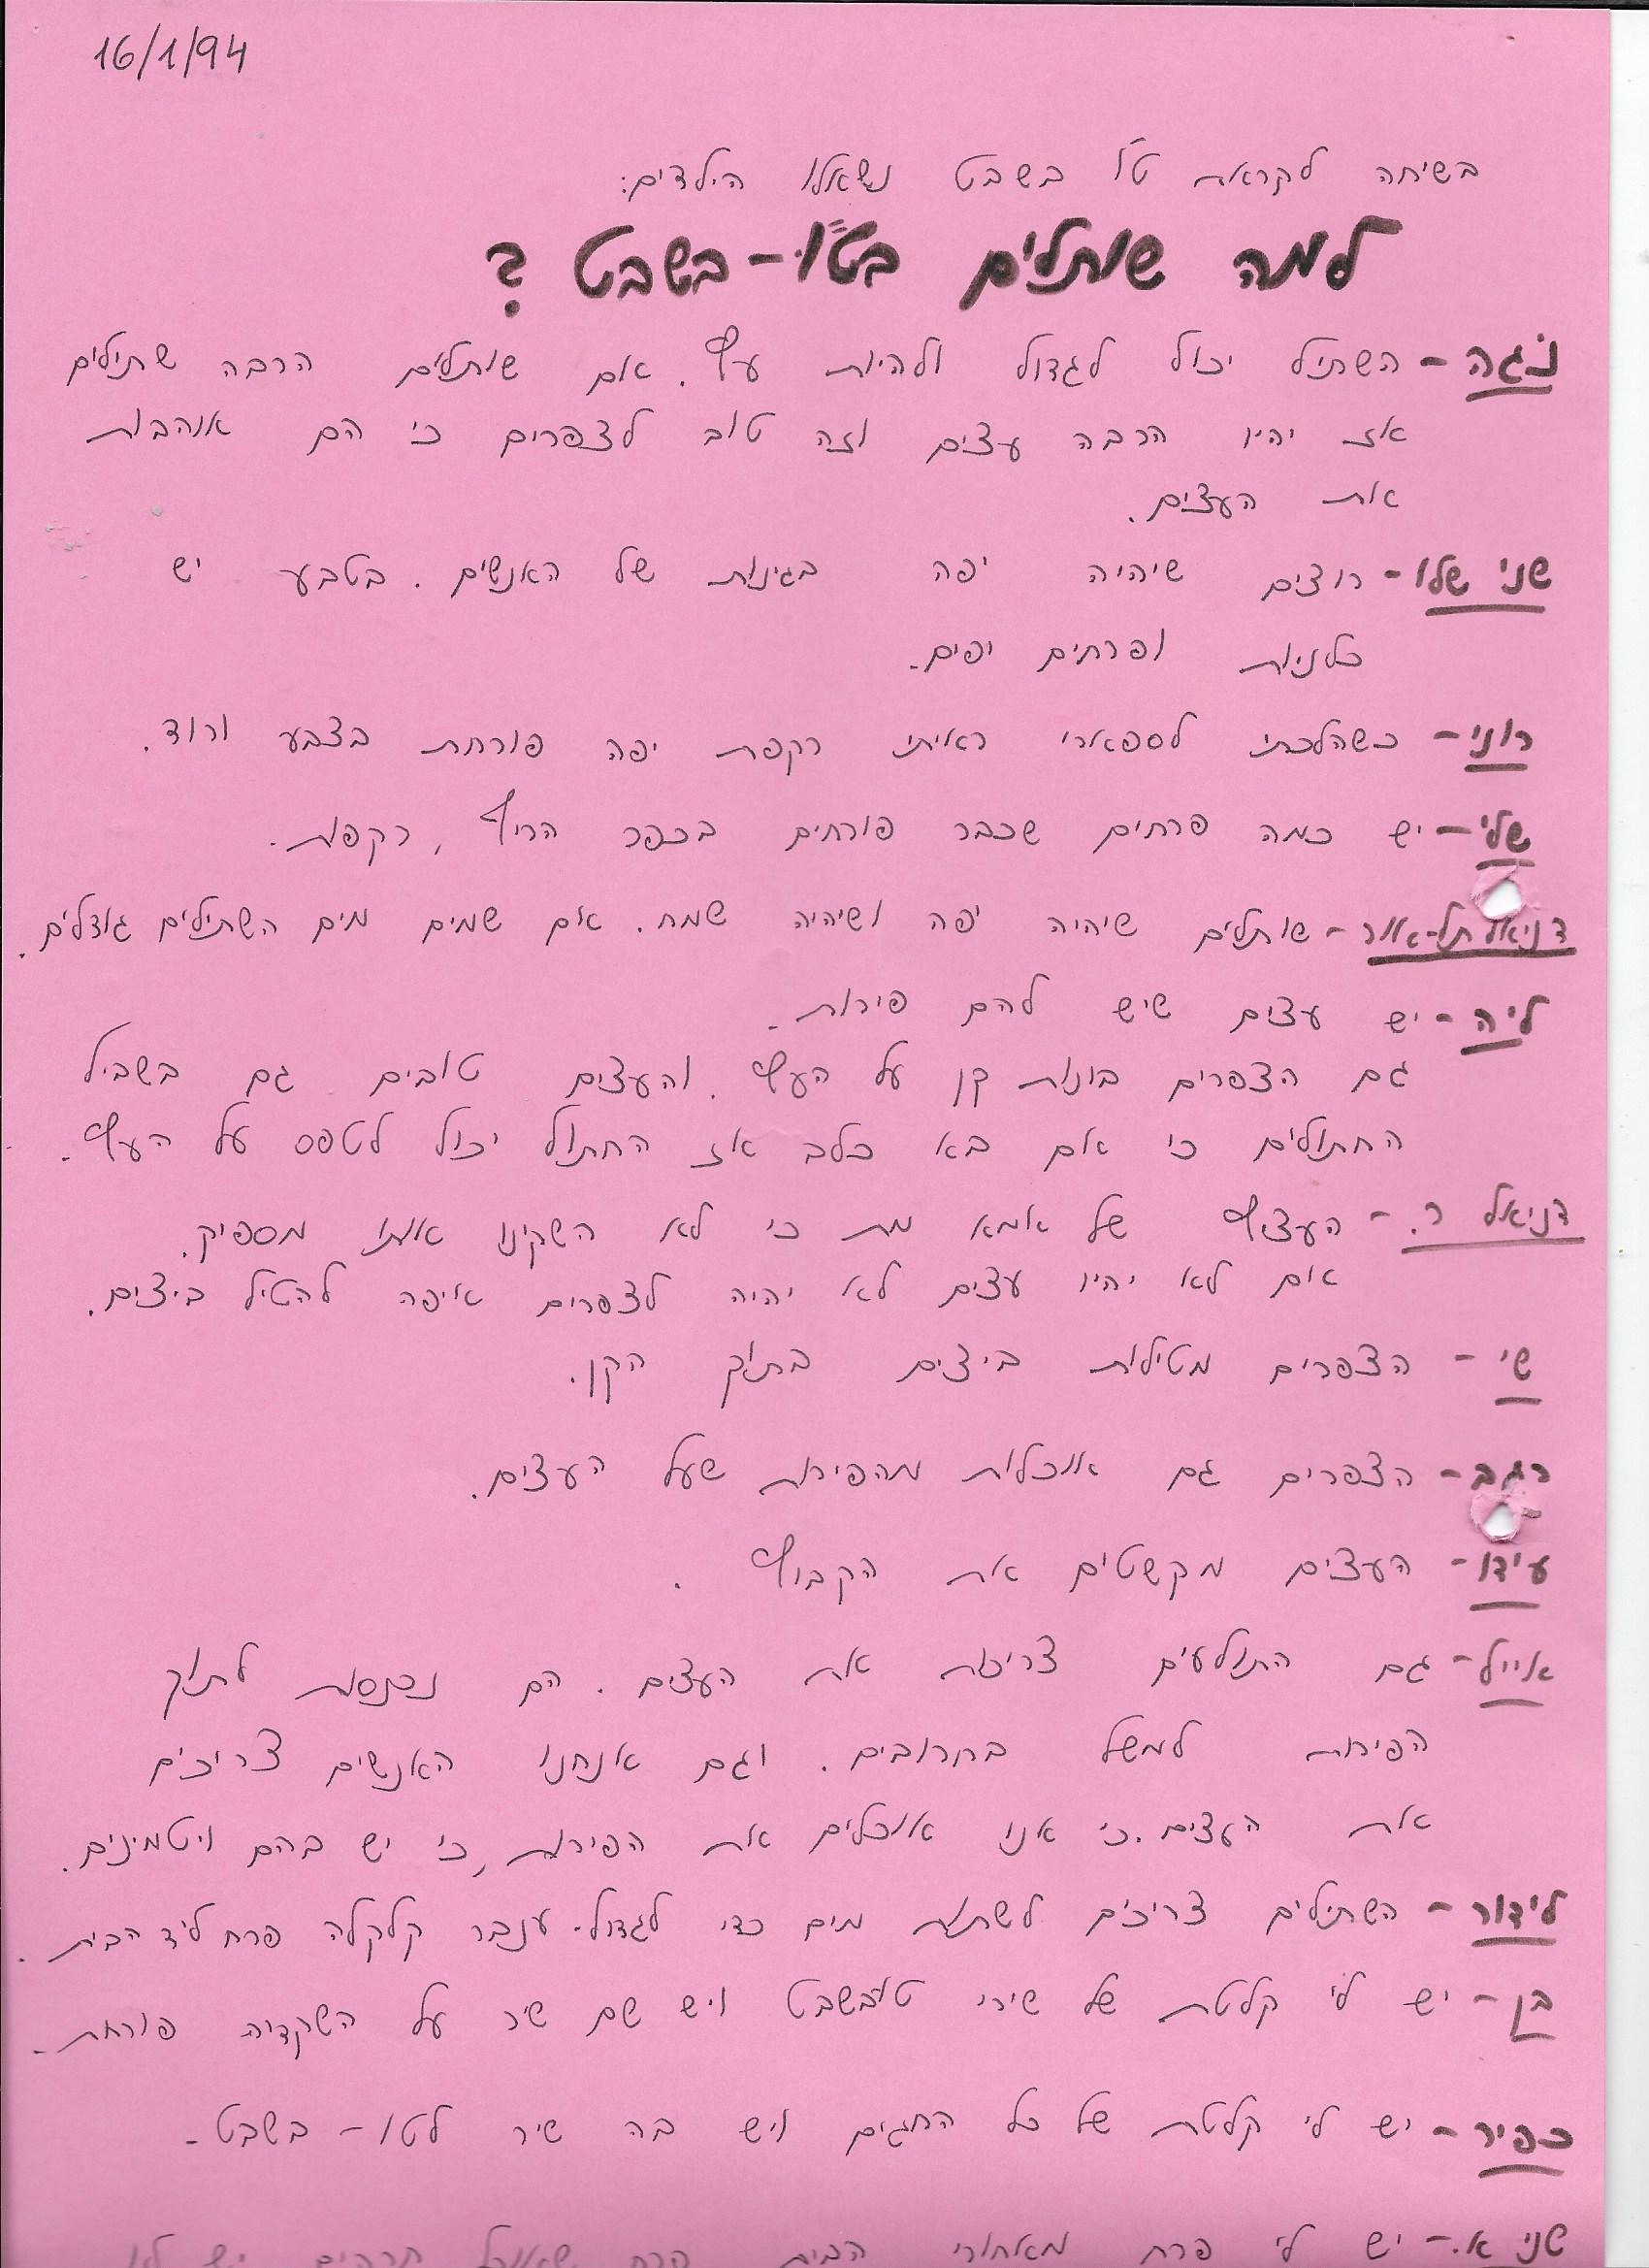 16/1/94
בשיחה לקראת ט"ו בשבט נשאלו הילדים:
למה שותלים בט"ו-בשבט?
נגה - השתיל יכול לגדול ולהיות עץ. אם שותלים הרבה שתילים
אז יהיו הרבה עצים וזה טוב לצפרים כי הם אוהבות
את העצים.
שני שלו - רוצים שיהיה יפה בגינות של האנשים. בטבע יש
כלניות ופרחים יפים.
רוני - כשהלכתי לספארי ראיתי רקפת יפה פורחת בצבע ורוד.
שלי - יש כמה פרחים שכבר פורחים בכפר הריף, רקפות.
דניאל תל-אור - שותלים שיהיה יפה ושיהיה שמח. אם שמים מים השתילים גודלים.
ליה - יש עצים שיש להם פירות.
גם הצפרים בונות קן על העץ. והעצים טובים גם בשביל
החתולים כי אם בא כלב אז החתול יכול לטפס על העץ.
דניאל ר. - העציץ של אמא מת כי לא השקינו אותו מספיק.
אם לא יהיו עצים לא יהיה לצפרים איפה להטיל ביצים.
שי - הצפרים מטילות ביצים בתוך הקן.
רגב - הצפרים גם אוכלות מהפירות שעל העצים.
עידו - העצים מקשטים את הקבוץ.
אייל - גם התולעים צריכות את העצים. הם נכנסות לתוך
הפירות למשל בחרובים. וגם אנחנו האנשים צריכים
את העצים. כי אנו אוכלים את הפירות, כי יש בהם ויטמינים.
לידור - השתילים צריכים לשתות מים כדי לגדול. ענבר קלקלה פרח ליד הבית.
בן - יש לי קלטת של שירי ט"ו בשבט ויש שם שיר על השקדיה פורחת.
כפיר - יש לי קלטת של כל החגים ויש בה שיר לטו-בשבט.
שני א. - יש לי פרח מאחורי הבית